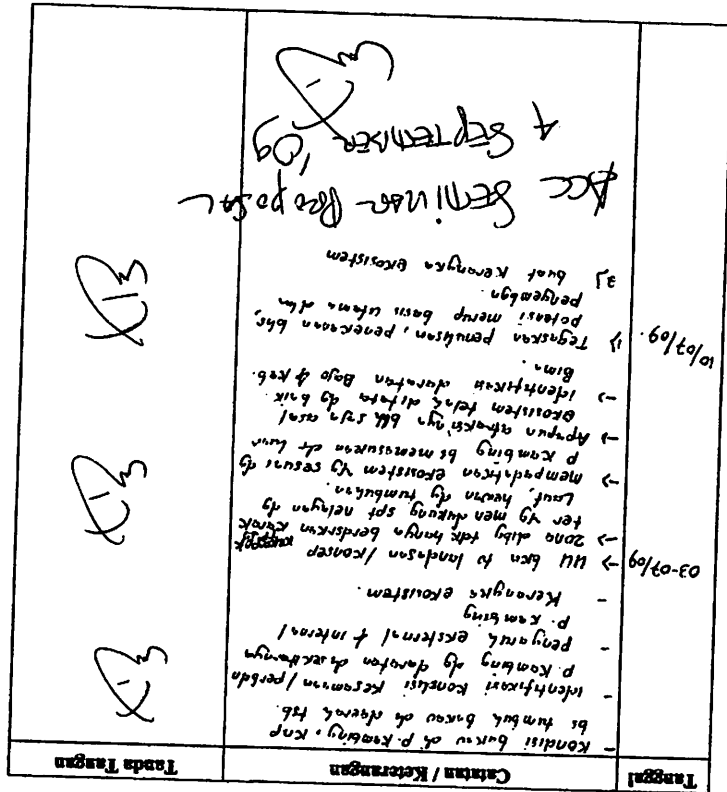 Tanggal
Catatan / Keterangan
Tanda Tangan
- Kondisi bakau di P. Kambing, Knp
bs tumbuh bakau di daerah tsb.
- identifikasi kondisi kesamaan / perbdn
P. Kambing dg daratan disekitarnya
- pengaruh eksternal & internal
P. Kambing
- Kerangka ekosistem.
03-07/09
→ UU bkn tu landasan / konsep
→ zona dibg tdk hanya berdsrkan karak
ter yg mendukung spt nelayan dg
laut, hewan dg tumbuhan.
→ mempadatkan ekosistem yg sesuai dg
P Kambing bs memasukan dr luar
→ Apapun atraksi nya blh saja asal
ekosistem telah ditata dg baik.
→ identifikasi daratan Bajo & kab.
Bima.
10/07/09.
1) Tegaskan penulisan, penekanan bhs,
potensi merup basis utama dlm
pengembgn.
2) buat kerangka ekosistem
Acc Seminar Proposal
September '09